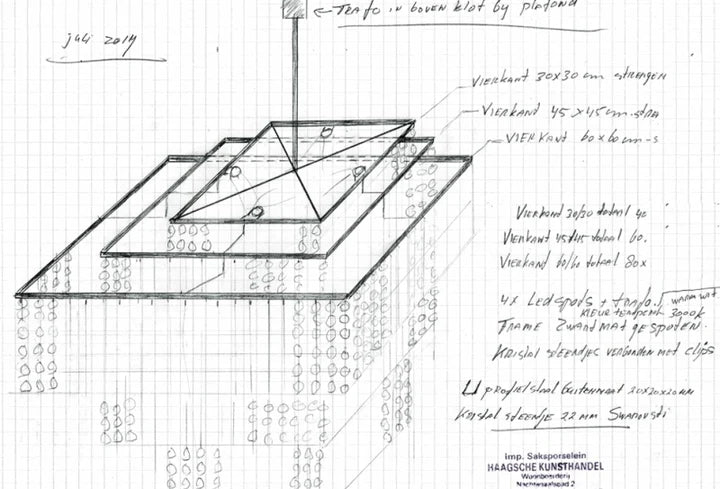 ← Trafo in boven klot by plafond
juli 2014
Vierkant 30x30 cm strengen
Vierkant 45x45 cm-stren
Vierkant 60x60 cm-s
Vierkant 30/30 totaal 40
Vierkant 45/45 totaal 60.
Vierkant 60/60 totaal 80x
4x Ledspots + trafo. warm wit
kleur temperat 3000k
Frame Zwart mat gespoten.
Kristal steentjes verbonden met clips
U profielstaal Buitenmaat 20x20x20mm
Kristal steentje 22 mm Swarovski
Imp. Saksporselein
HAAGSCHE KUNSTHANDEL
Woonboerderij